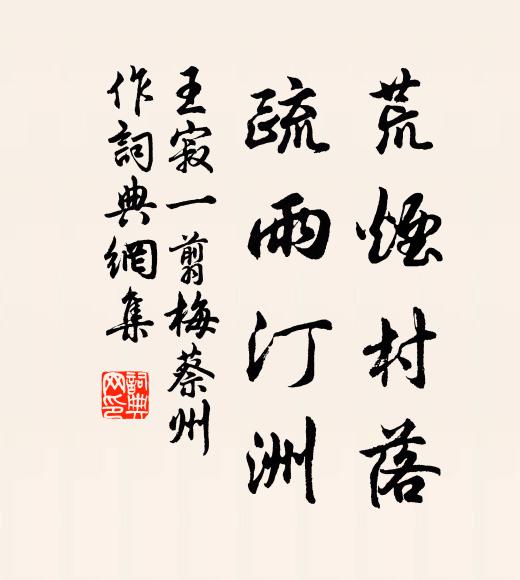 荒煙村落
疏雨汀洲
王寂一剪梅蔡州
作詞典網集
詞典
网印